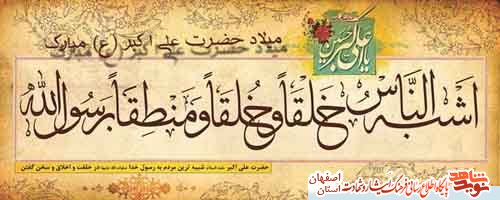 میلاد حضرت علی اکبر (ع) مبارک
یا علی اکبر حسین
اشبه الناس خَلقاً و خُلقاً و مَنطقاً برسول الله
حضرت علی اکبر علیه السلام شبیه ترین مردم به رسول خدا در خلقت و اخلاق و سخن گفتن
نوید شاهد
پایگاه اطلاع رسانی فرهنگ ایثار و شهادت استان اصفهان